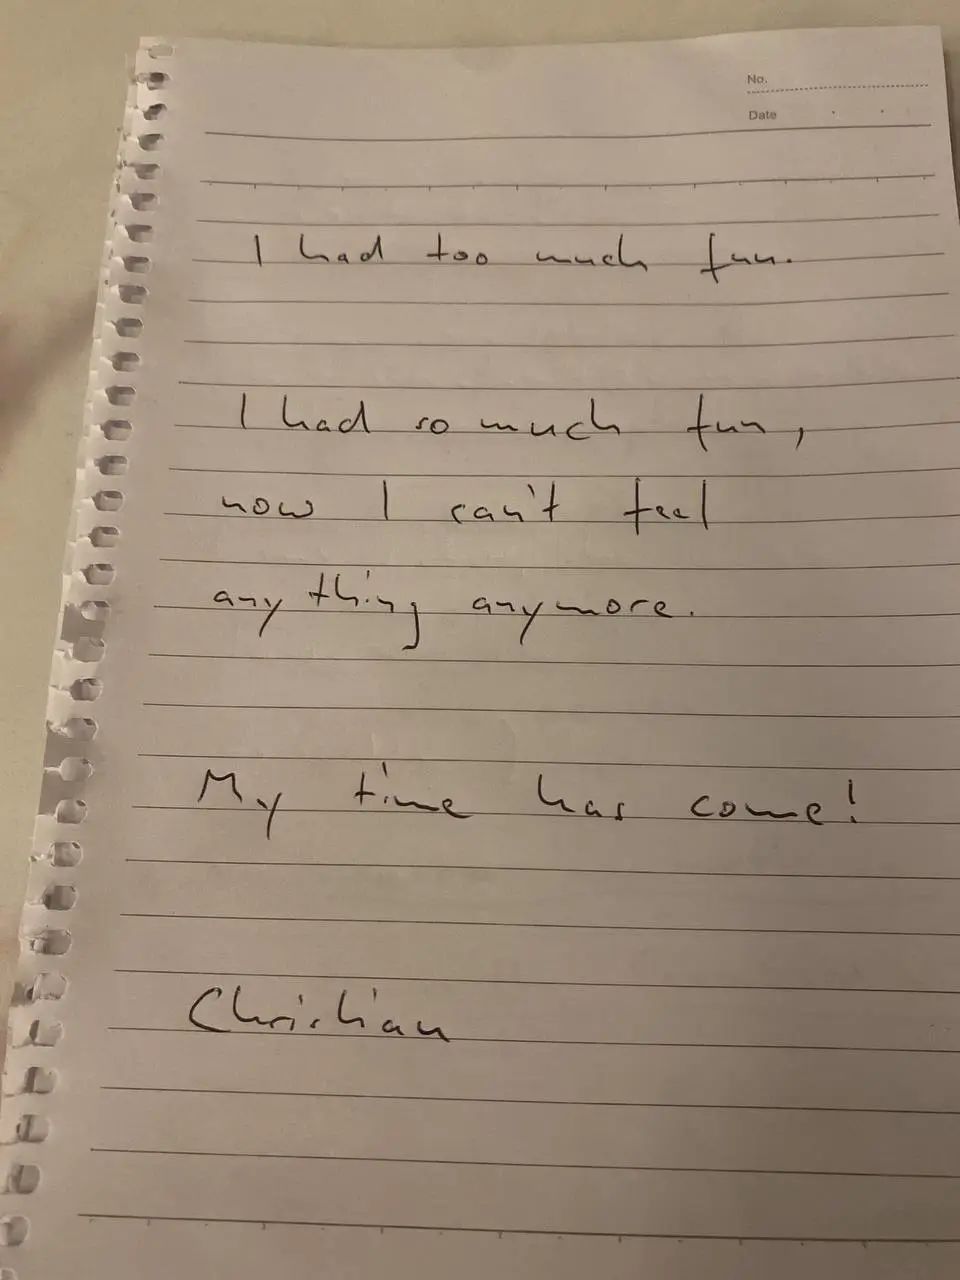 No.
Date
I had too much fun.
I had so much fun,
now I can't feel
anything anymore.
My time has come!
Christian